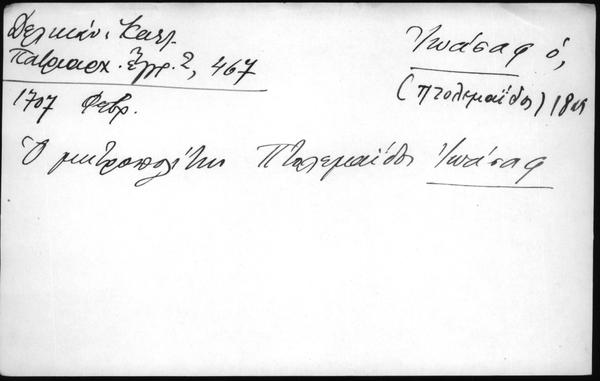 Δελικάν. Καλλ.
Πατριαρχ. Ἔγγρ. 2, 467
1707 Φεβρ.
Ἰωάσαφ ὁ,
(Πτολεμαΐδος) 18ος
Ὁ μητροπολίτης Πτολεμαΐδος Ἰωάσαφ